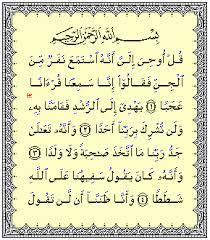 بِسْمِ اللَّهِ الرَّحْمَٰنِ الرَّحِيمِ
قُلْ أُوحِيَ إِلَيَّ أَنَّهُ اسْتَمَعَ نَفَرٌ مِّنَ
الْجِنِّ فَقَالُوا إِنَّا سَمِعْنَا قُرْءَانًا
عَجَبًا ١ يَهْدِي إِلَى الرُّشْدِ فَـَٔامَنَّا بِهِ
وَلَن نُّشْرِكَ بِرَبِّنَا أَحَدًا ٢ وَأَنَّهُ تَعَٰلَىٰ
جَدُّ رَبِّنَا مَا اتَّخَذَ صَٰحِبَةً وَلَا وَلَدًا ٣
وَأَنَّهُ كَانَ يَقُولُ سَفِيهُنَا عَلَى اللَّهِ
شَطَطًا ٤ وَأَنَّا ظَنَنَّا أَن لَّن تَقُولَ